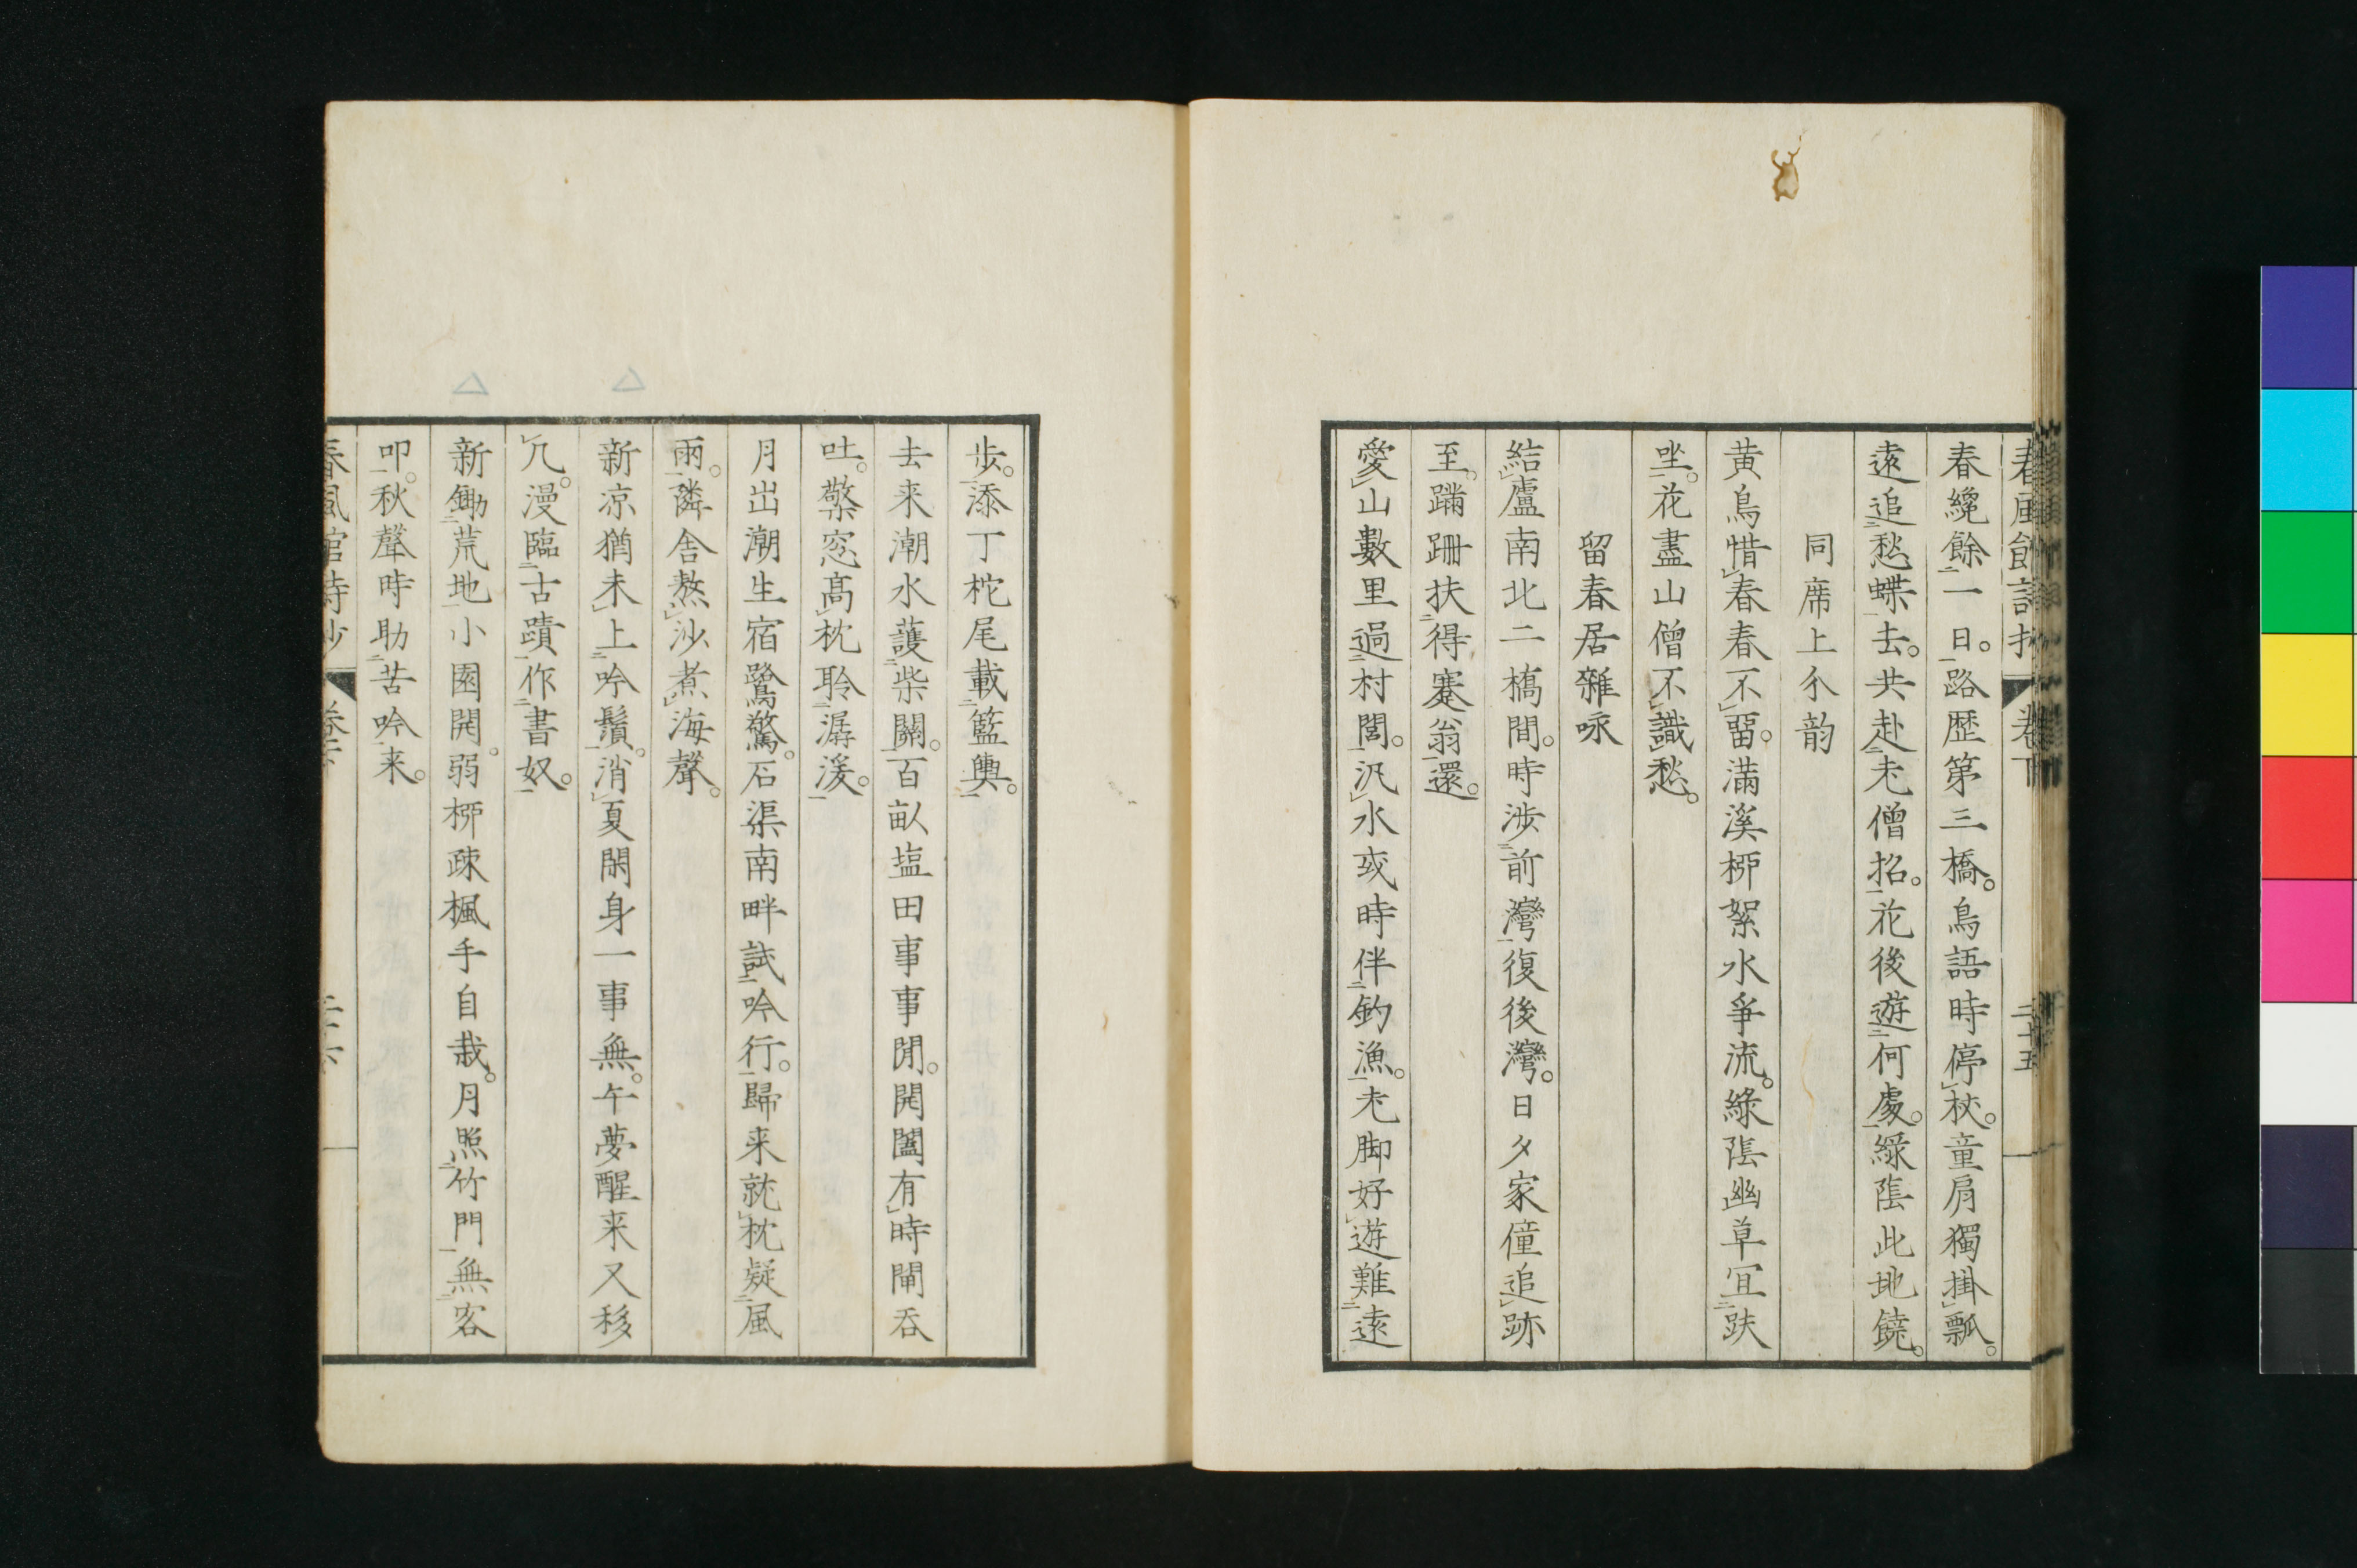 春風館詩抄 卷下 二十五
春纔餘一日。路歴第三橋。鳥語時停杖。童肩獨掛瓢。
遠追愁蝶去。共赴老僧招。花後遊何處。綠陰此地饒。
同席上分韵
黄鳥惜春春不留。滿溪桺絮水爭流。綠陰幽草宜趺
坐。花盡山僧不識愁。
留春居雜咏
結廬南北二橋間。時渉前灣復後灣。日夕家僮追跡
至。蹣跚扶得蹇翁還。
愛山數里過村閭。汎水或時伴釣漁。老脚好遊難遠
步。添丁柁尾載籃輿。
去来潮水護柴關。百畝塩田事事閒。開闔有時閘吞
吐。檠窓髙枕聆潺湲。
月出潮生宿鷺驚。石渠南畔試吟行。歸来就枕疑風
雨。隣舍熬沙煮海聲。
新凉猶未上吟鬚。消夏閑身一事無。午夢醒来又移
几。漫臨古蹟作書奴。
新鋤荒地小園開。弱桺疎楓手自栽。月照竹門無客
叩。秋聲時助苦吟来。
春風館詩抄 卷下